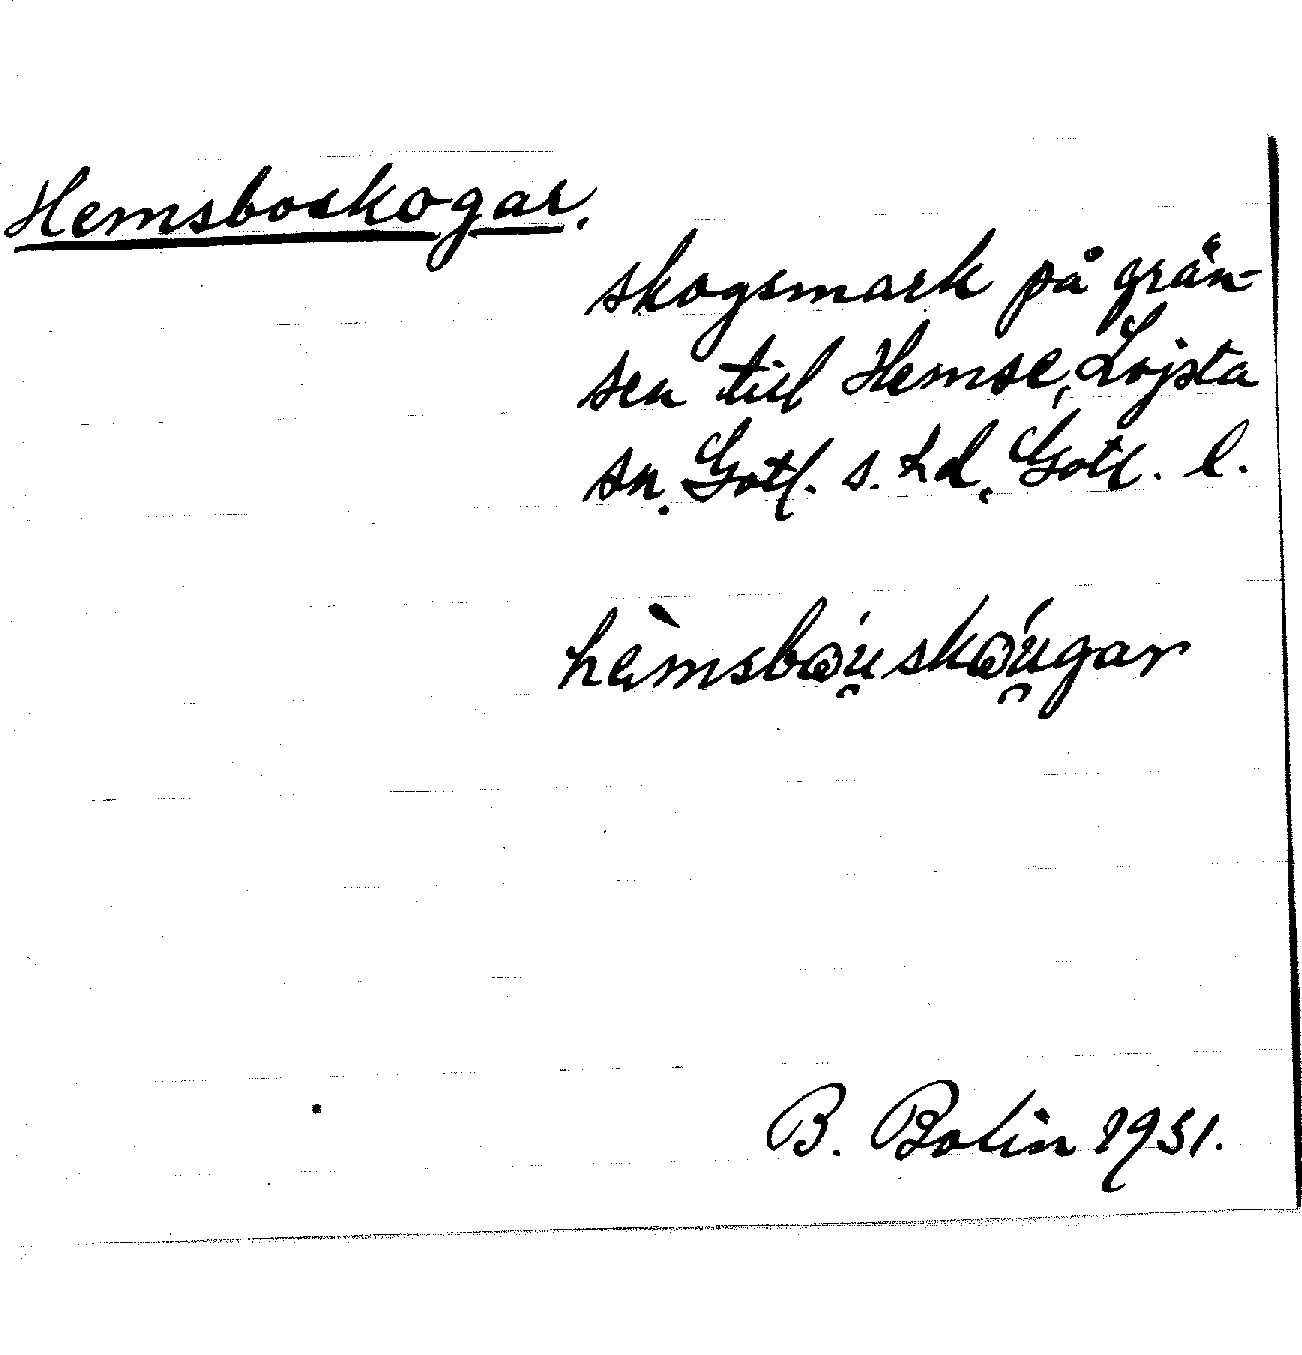 Hemsboskogar.
skogsmark på grän-
sen till Hemse, Lojsta
sn. Gotl. s. hd, Gotl. l.
hèmsbώu̯skώu̯gar
B. Bolin 1931.